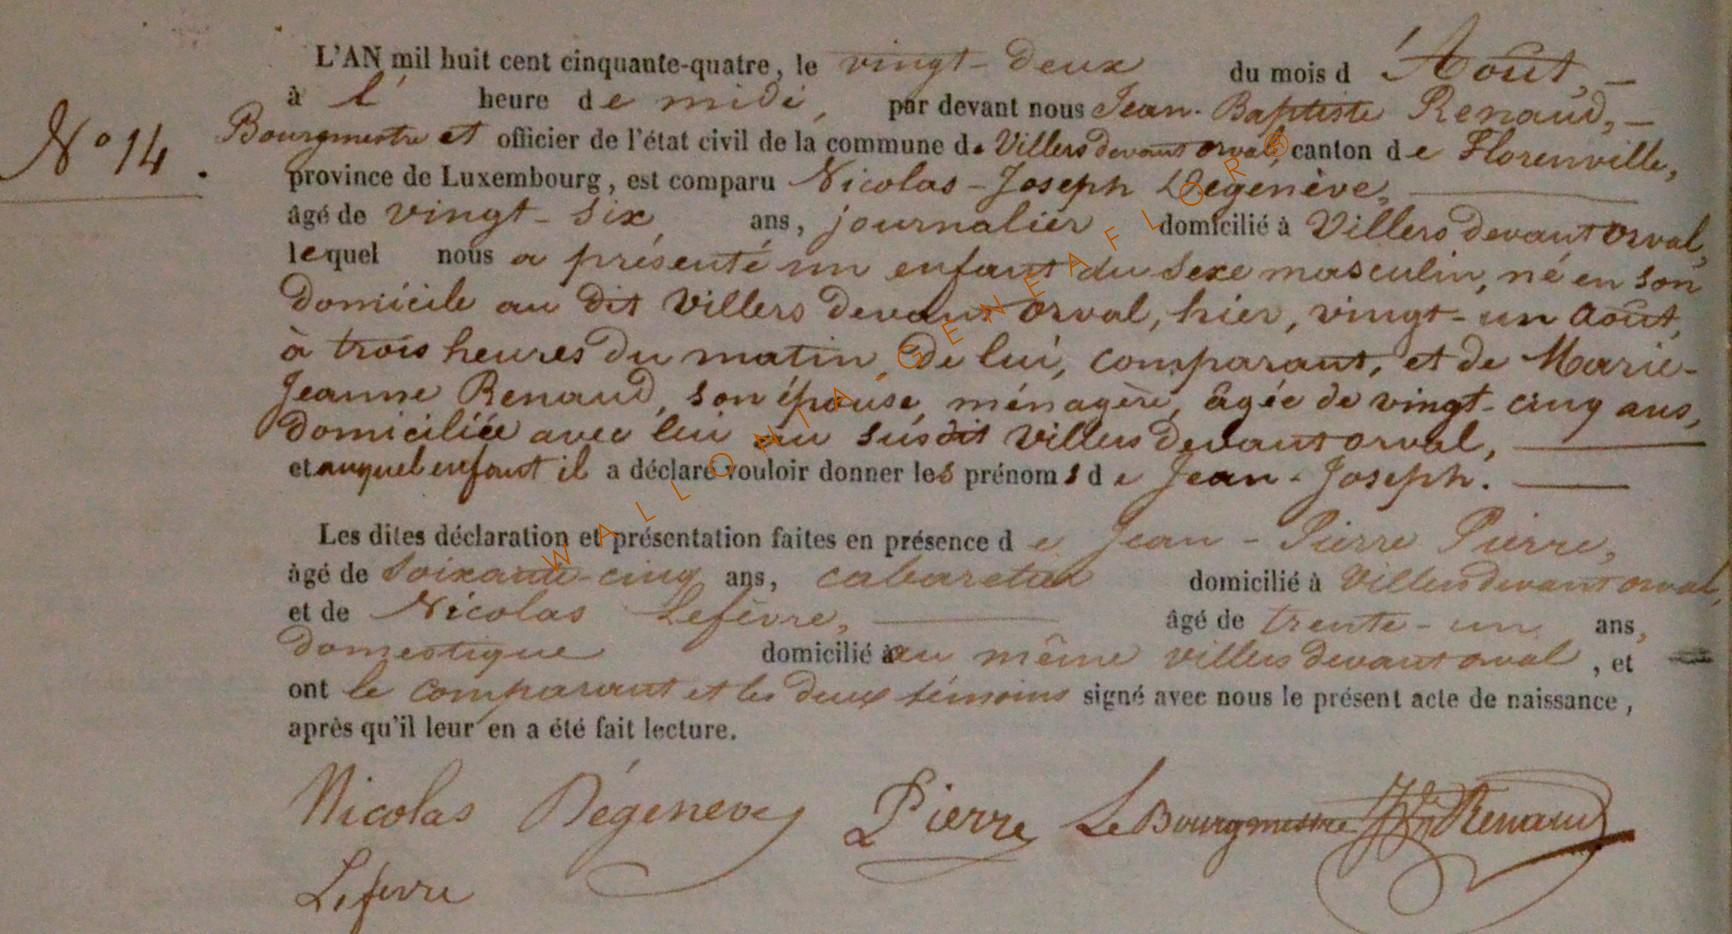 L'AN mil huit cent cinquante-quatre, le vingt-deux du mois d'Août,
à l' heure de midi, par devant nous Jean-Baptiste Renaud,
N° 14. Bourgmestre et officier de l'état civil de la commune de Villers devant orval, canton de Florenville,
province de Luxembourg, est comparu Nicolas-Joseph Degenève,
âgé de vingt-six ans, journalier domicilié à Villers devant orval,
lequel nous a présenté un enfant du sexe masculin, né en son
domicile au dit Villers devant orval, hier, vingt-un août,
à trois heures du matin, de lui, comparant, et de Marie-
Jeanne Renaud, son épouse, ménagère, âgée de vingt-cinq ans,
domiciliée avec lui au susdit Villers devant orval,
et auquel enfant il a déclaré vouloir donner les prénoms de Jean-Joseph.
Les dites déclaration et présentation faites en présence de Jean-Pierre Pierre,
âgé de soixante-cinq ans, cabaretier domicilié à Villers devant orval,
et de Nicolas Lefèvre, âgé de trente-un ans,
domestique domicilié au même villers devant orval, et
ont le comparant et les deux témoins signé avec nous le présent acte de naissance,
après qu'il leur en a été fait lecture.
Nicolas Dégeneve Pierre Le Bourgmestre Renaud
Lefevre
WALLONIA-GENEAFLOR®